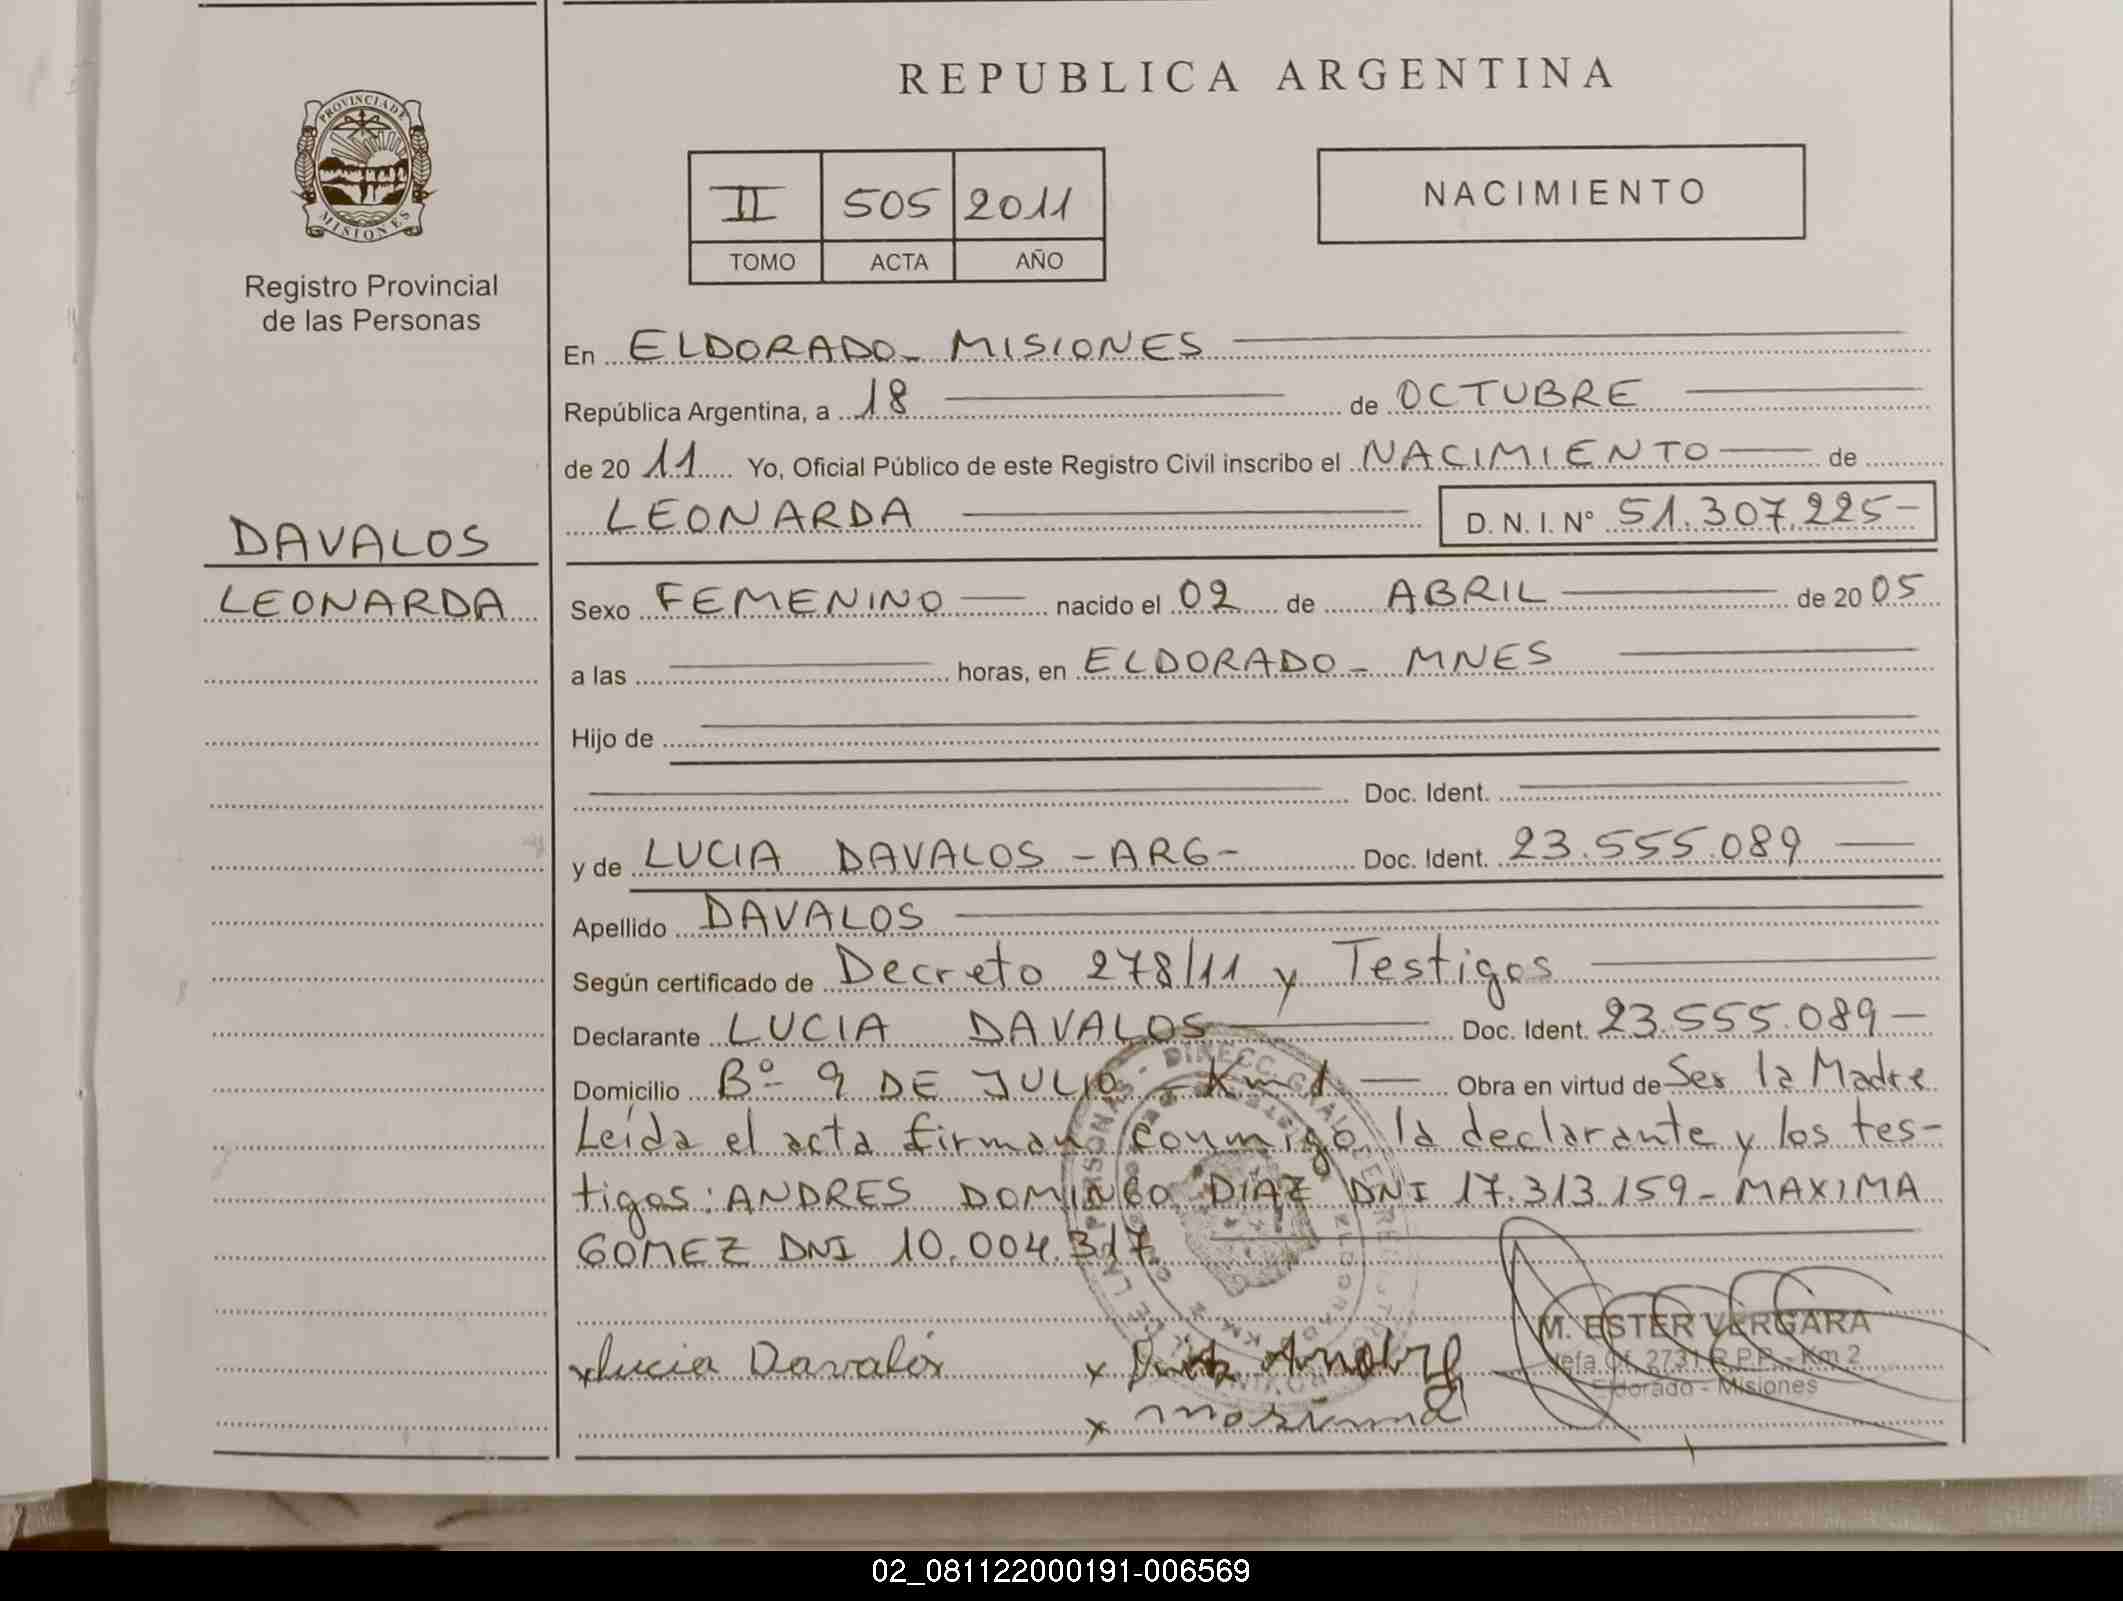 REPUBLICA ARGENTINA
PROVINCIA DE MISIONES
Registro Provincial
de las Personas
II 505 2011
TOMO ACTA AÑO
NACIMIENTO
En ELDORADO - MISIONES
República Argentina, a 18 de OCTUBRE
de 20 11 Yo, Oficial Público de este Registro Civil inscribo el NACIMIENTO de
LEONARDA D. N. I. Nº 51.307.225-
DAVALOS
LEONARDA
Sexo FEMENINO nacido el 02 de ABRIL de 20 05
a las horas, en ELDORADO - MNES
Hijo de
Doc. Ident.
y de LUCIA DAVALOS - ARG - Doc. Ident. 23.555.089
Apellido DAVALOS
Según certificado de Decreto 278/11 y Testigos
Declarante LUCIA DAVALOS Doc. Ident. 23.555.089-
Domicilio Bº 9 DE JULIO - Km 1 Obra en virtud de Ser la Madre
Leída el acta firman conmigo la declarante y los tes-
tigos: ANDRES DOMINGO DIAZ DNI 17.313.159- MAXIMA
GOMEZ DNI 10.004.317
M. ESTER VERGARA
Jefa Of. 2731 R.P.P. - Km 2
Eldorado - Misiones
x Lucia Davalos
x
x
02_081122000191-006569